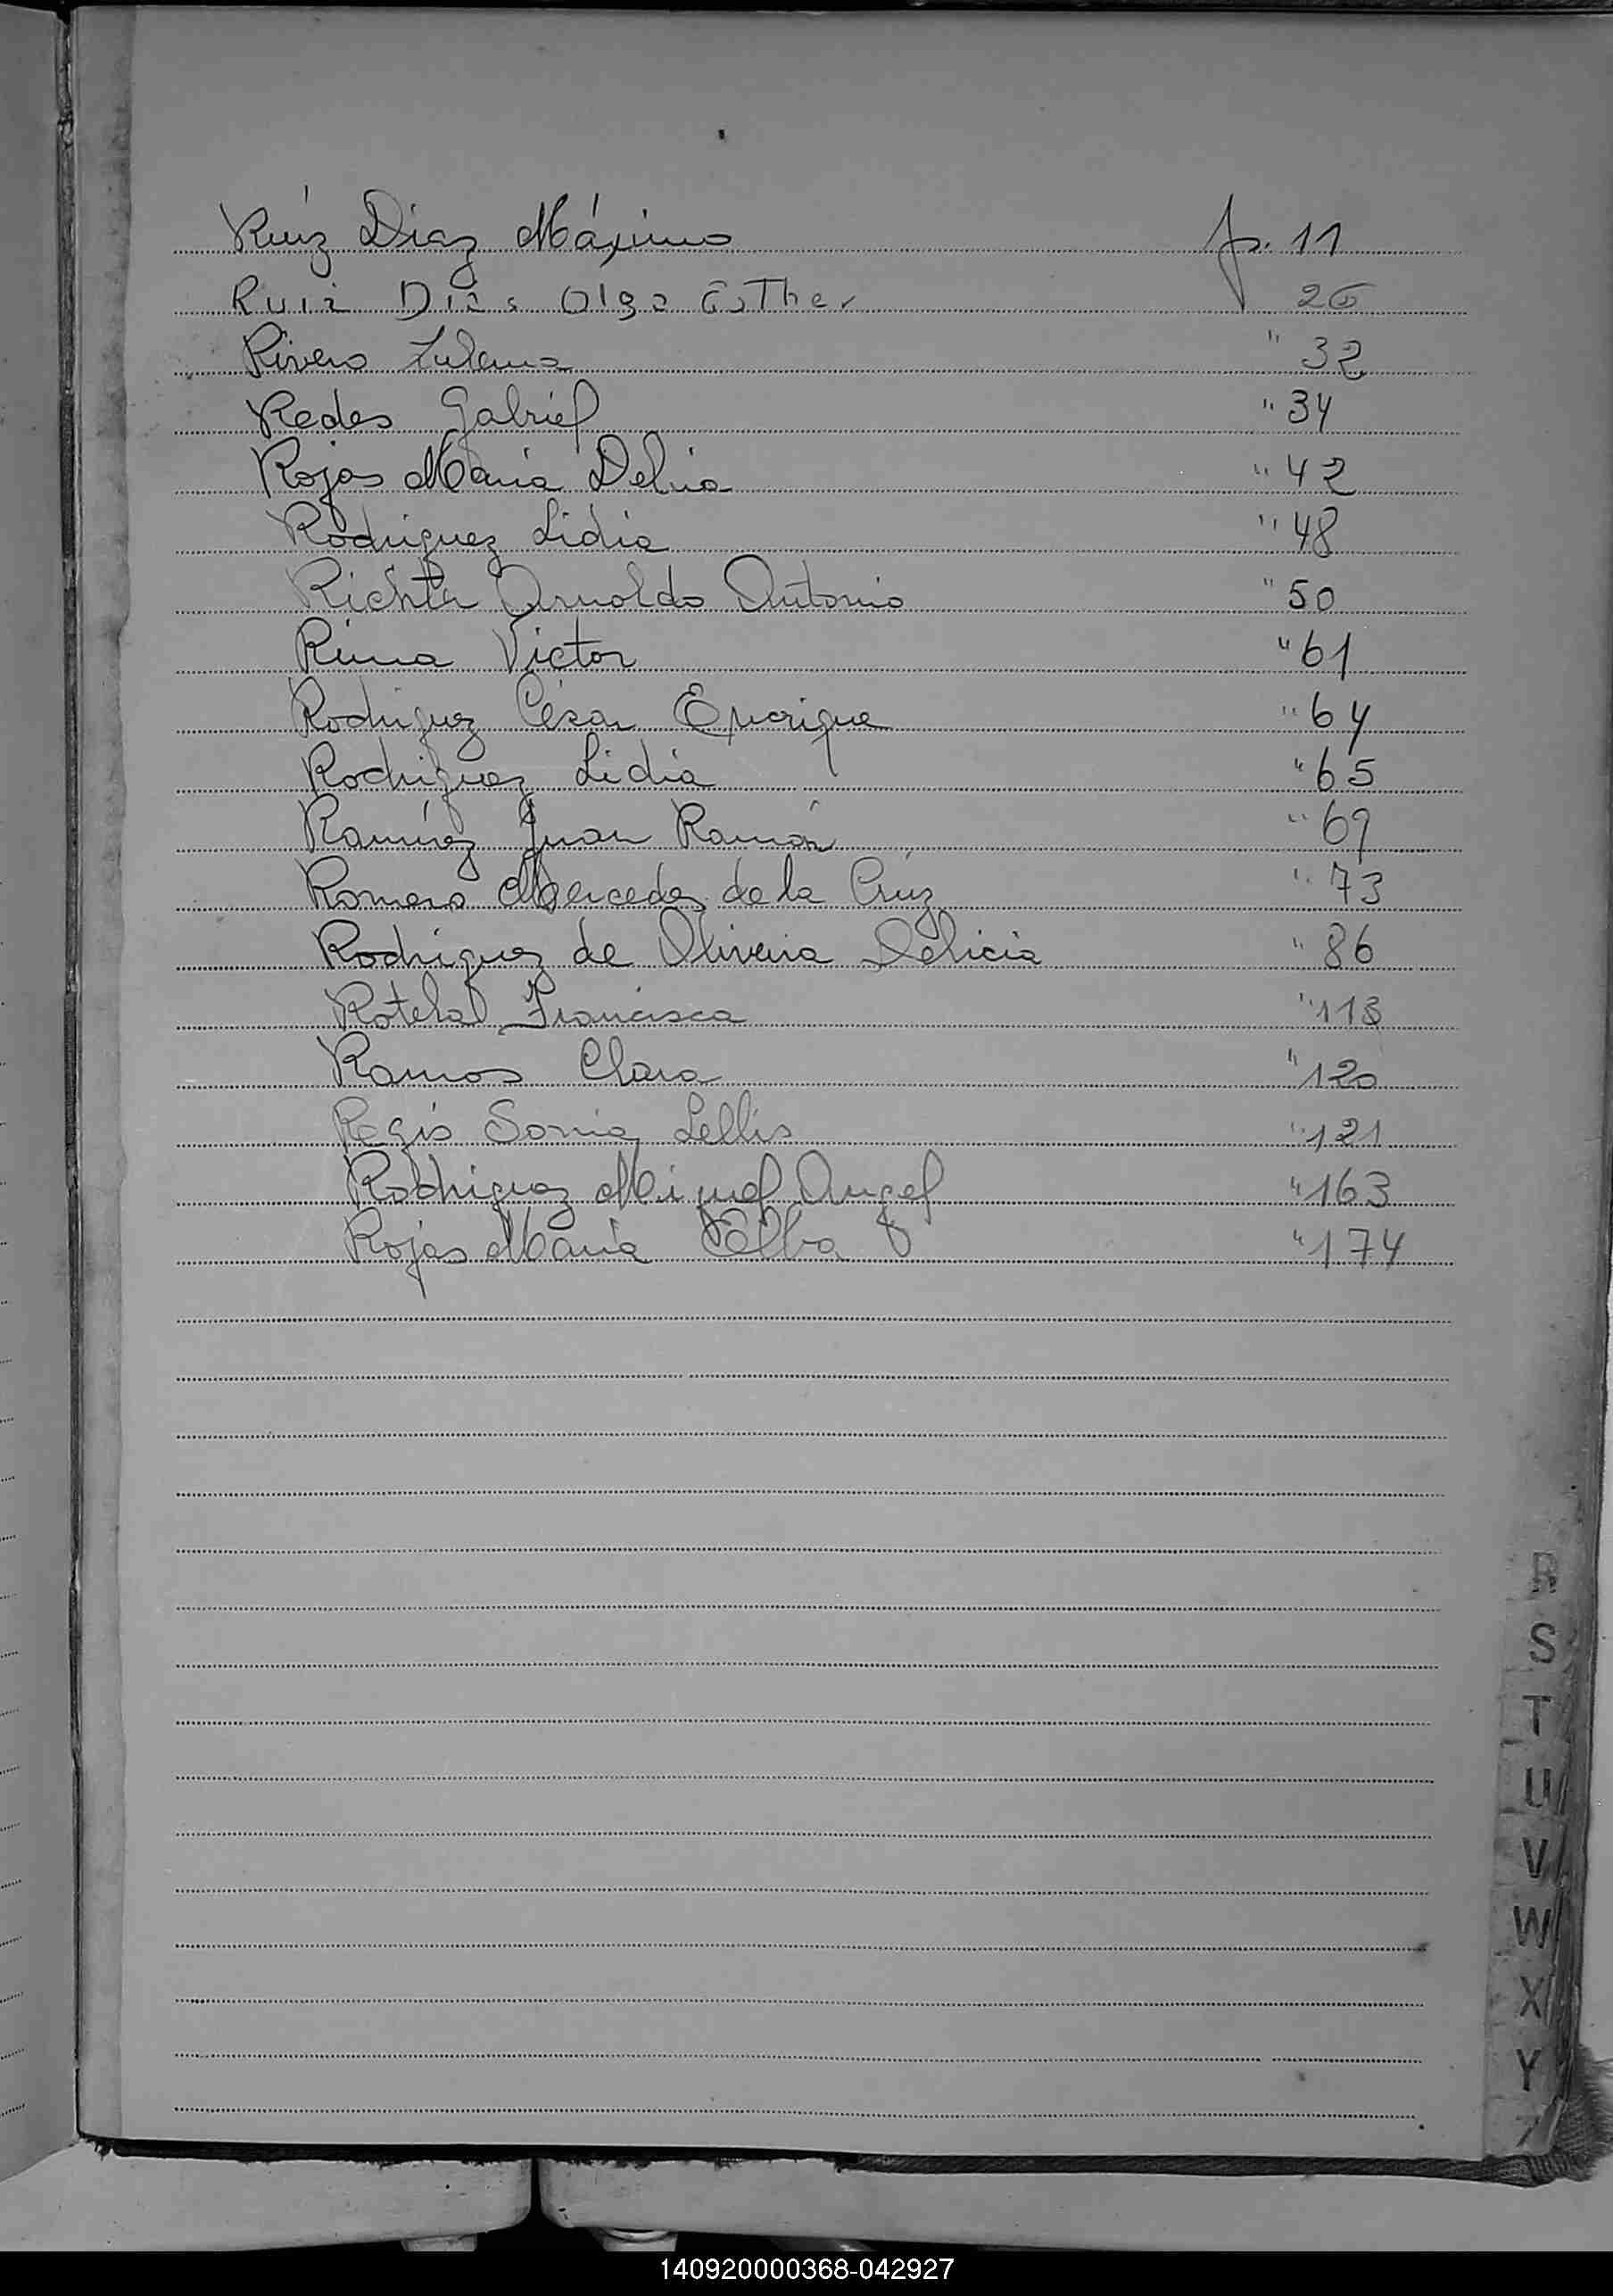 Ruíz Díaz Máximo p. 11
Ruiz Dias Olga Esther 26
Rivero Zulema " 32
Redes Gabriel " 34
Rojas María Delia " 42
Rodriguez Lidia " 48
Richter Arnoldo Antonio " 50
Victor " 61
Rodriguez César Enrique " 64
Rodriguez Lidia " 65
Ramírez Juan Ramón " 69
Romero Mercedes de la Cruz " 73
Rodriguez de Oliveira Delicia " 86
Rotela Francisca " 113
Ramos Clara " 120
Regis Sonia Lellis " 121
Rodriguez Miguel Angel " 163
Rojas María Elba " 174
R
S
T
U
V
W
X
Y
Z
140920000368-042927